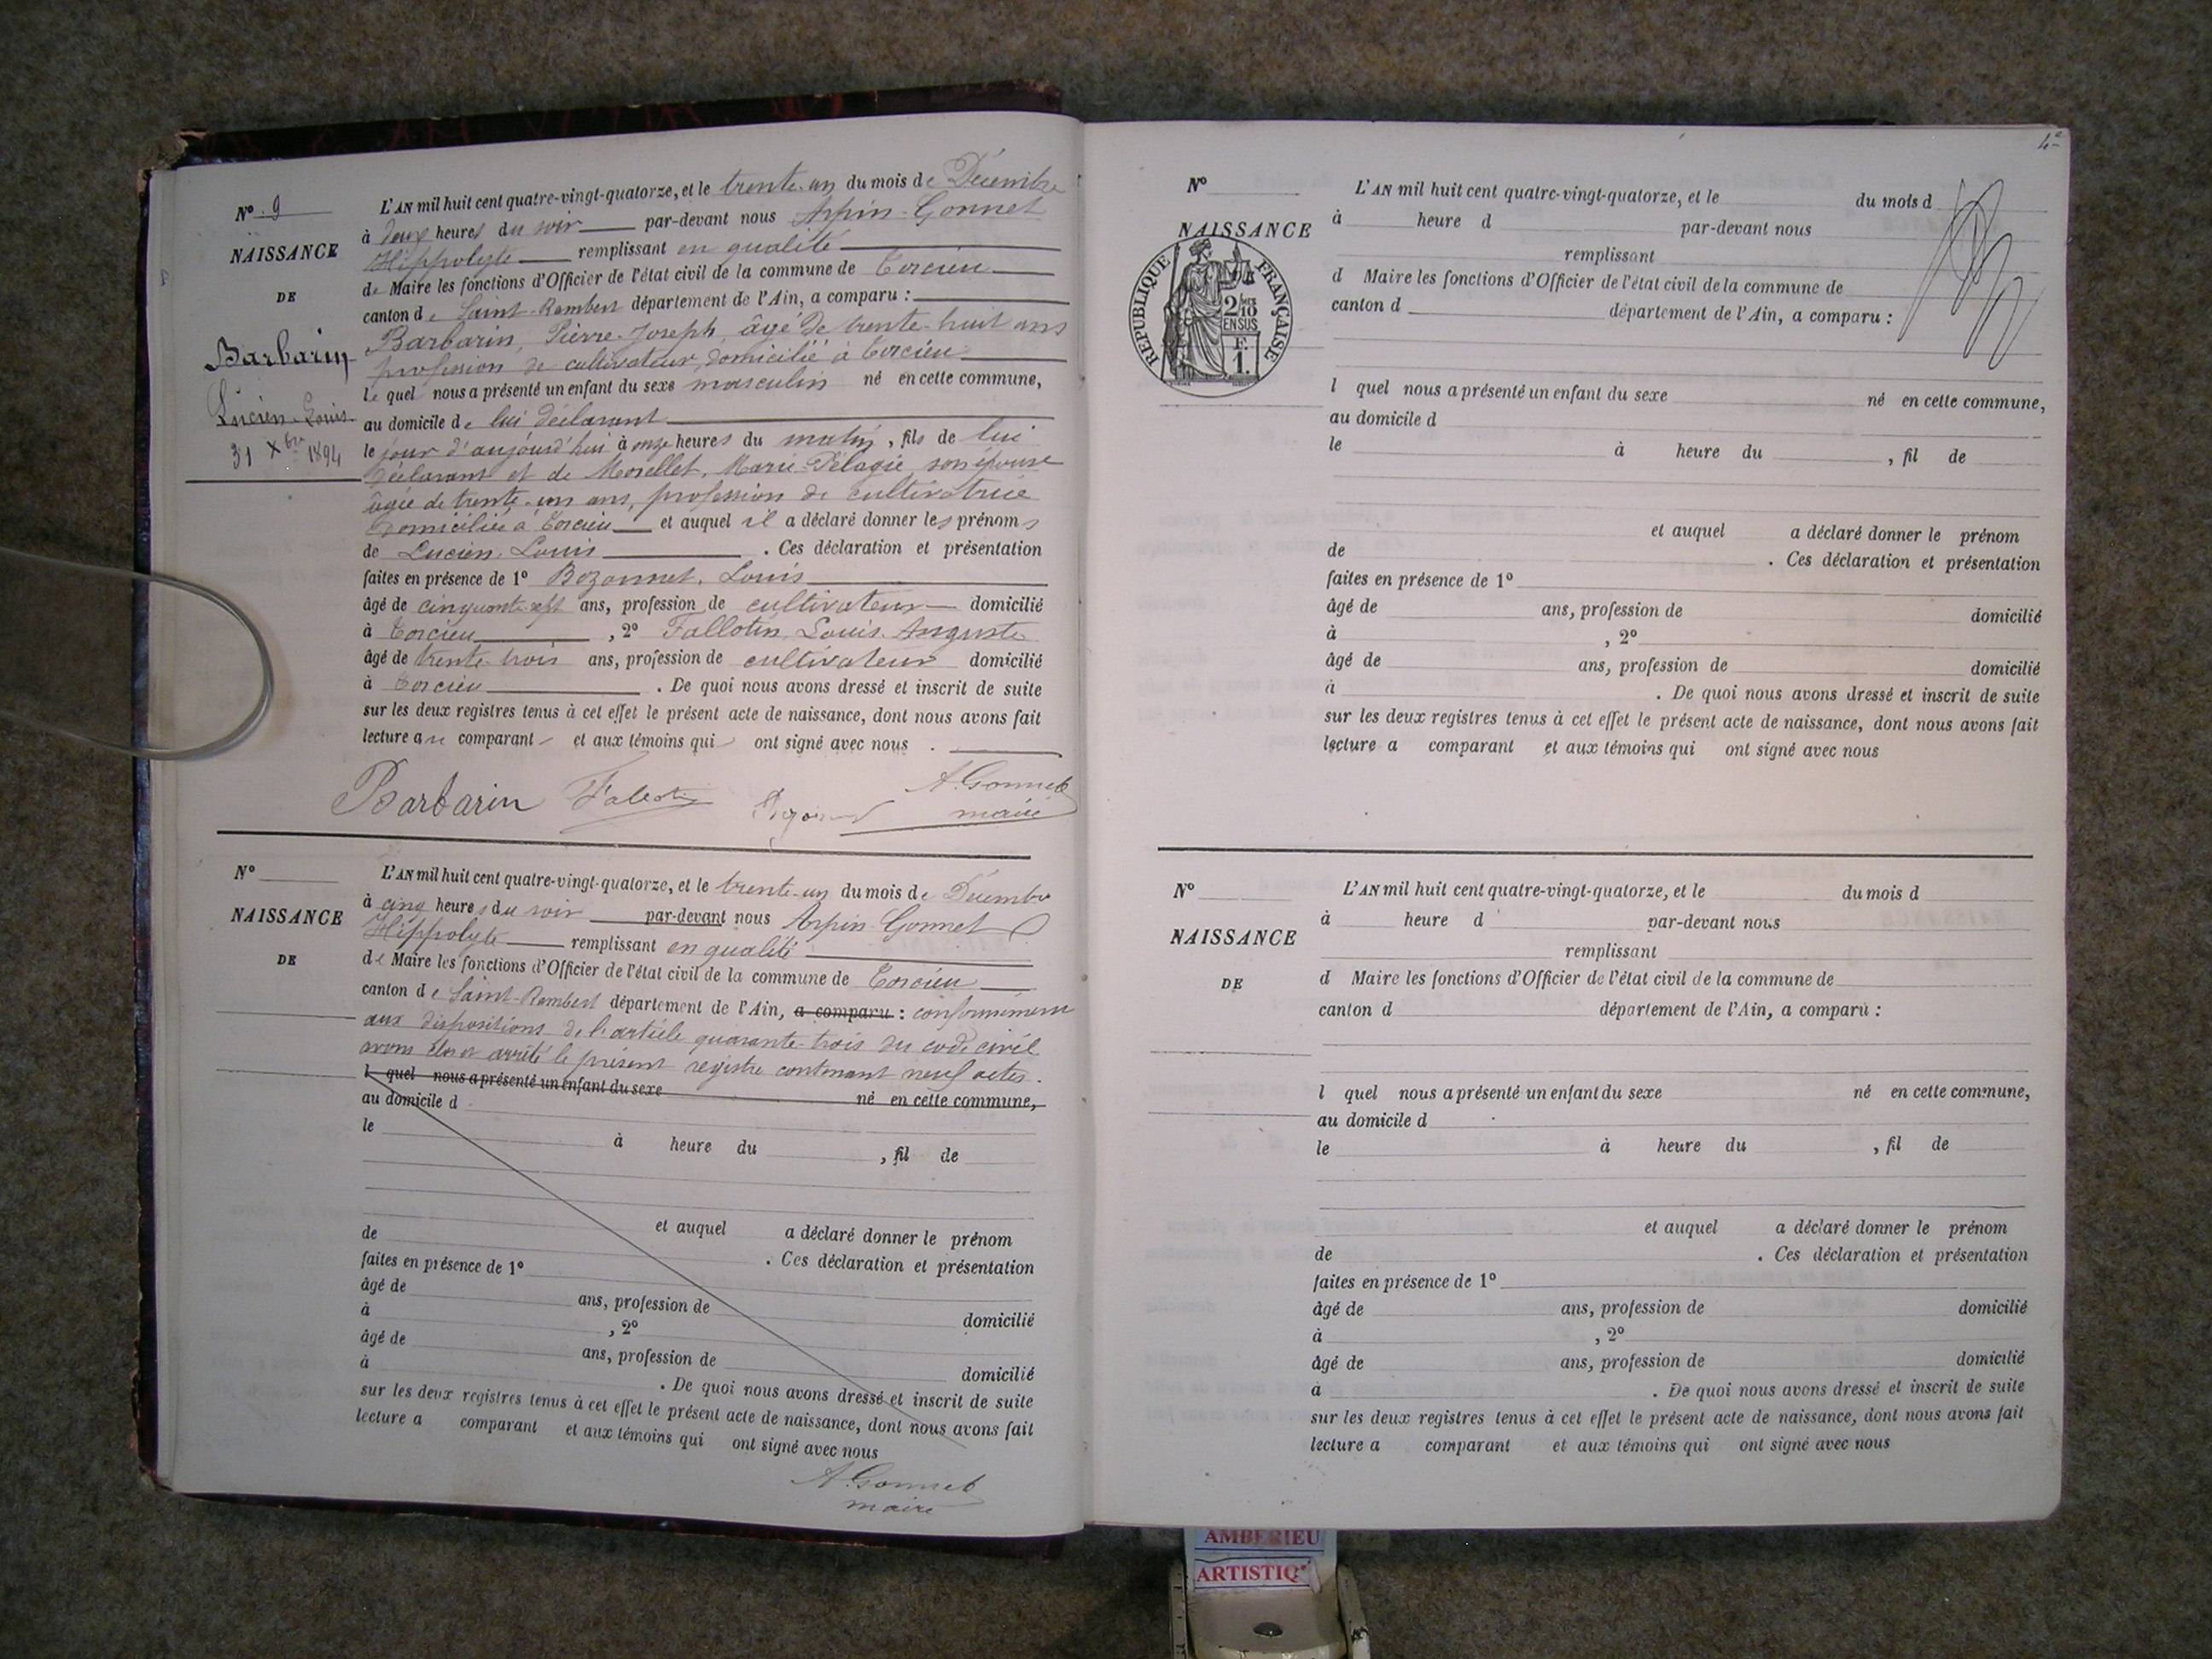 N° 9
NAISSANCE
DE
Barbarin
Lucien-Louis
31 Xbre 1894
L'AN mil huit cent quatre-vingt-quatorze, et le trente-un du mois de Décembre
à deux heures du soir par-devant nous Arpin-Gonnet
Hippolyte remplissant en qualité
de Maire les fonctions d'Officier de l'état civil de la commune de Torcieu
canton de Saint-Rambert département de l'Ain, a comparu :
Barbarin, Pierre-Joseph, âgé de trente-huit ans
profession de cultivateur, domicilié à Torcieu
le quel nous a présenté un enfant du sexe masculin né en cette commune,
au domicile de lui déclarant
le jour d'aujourd'hui à onze heures du matin, fils de lui
déclarant et de Morellet, Marie-Pélagie, son épouse
âgée de trente-un ans, profession de cultivatrice
domiciliée à Torcieu et auquel il a déclaré donner les prénoms
de Lucien-Louis . Ces déclaration et présentation
faites en présence de 1° Bozonnet, Louis
âgé de cinquante-sept ans, profession de cultivateur domicilié
à Torcieu , 2° Fallotin, Louis-Auguste
âgé de trente-trois ans, profession de cultivateur domicilié
à Torcieu . De quoi nous avons dressé et inscrit de suite
sur les deux registres tenus à cet effet le présent acte de naissance, dont nous avons fait
lecture au comparant et aux témoins qui ont signé avec nous .
Barbarin Fallotin A. Gonnet
maire
N°
NAISSANCE
DE
L'AN mil huit cent quatre-vingt-quatorze, et le trente-un du mois de Décembre
à cinq heures du soir par-devant nous Arpin-Gonnet
Hippolyte remplissant en qualité
de Maire les fonctions d'Officier de l'état civil de la commune de Torcieu
canton de Saint-Rambert département de l'Ain, a comparu : conformément
aux dispositions de l'article quarante-trois du code civil
avons clos et arrêté le présent registre contenant neuf actes.
l quel nous a présenté un enfant du sexe né en cette commune,
au domicile d
le à heure du , fil de
et auquel a déclaré donner le prénom
de . Ces déclaration et présentation
faites en présence de 1°
âgé de ans, profession de domicilié
à , 2°
âgé de ans, profession de domicilié
à . De quoi nous avons dressé et inscrit de suite
sur les deux registres tenus à cet effet le présent acte de naissance, dont nous avons fait
lecture a comparant et aux témoins qui ont signé avec nous
A. Gonnet
maire
N°
NAISSANCE
RÉPUBLIQUE FRANÇAISE
2/10
EN SUS
F.
1.
L'AN mil huit cent quatre-vingt-quatorze, et le du mois d
à heure d par-devant nous
remplissant
d Maire les fonctions d'Officier de l'état civil de la commune de
canton d département de l'Ain, a comparu :
l quel nous a présenté un enfant du sexe né en cette commune,
au domicile d
le à heure du , fil de
et auquel a déclaré donner le prénom
de . Ces déclaration et présentation
faites en présence de 1°
âgé de ans, profession de domicilié
à , 2°
âgé de ans, profession de domicilié
à . De quoi nous avons dressé et inscrit de suite
sur les deux registres tenus à cet effet le présent acte de naissance, dont nous avons fait
lecture a comparant et aux témoins qui ont signé avec nous
N°
NAISSANCE
DE
L'AN mil huit cent quatre-vingt-quatorze, et le du mois d
à heure d par-devant nous
remplissant
d Maire les fonctions d'Officier de l'état civil de la commune de
canton d département de l'Ain, a comparu :
l quel nous a présenté un enfant du sexe né en cette commune,
au domicile d
le à heure du , fil de
et auquel a déclaré donner le prénom
de . Ces déclaration et présentation
faites en présence de 1°
âgé de ans, profession de domicilié
à , 2°
âgé de ans, profession de domicilié
à . De quoi nous avons dressé et inscrit de suite
sur les deux registres tenus à cet effet le présent acte de naissance, dont nous avons fait
lecture a comparant et aux témoins qui ont signé avec nous
AMBERIEU
ARTISTIQ'